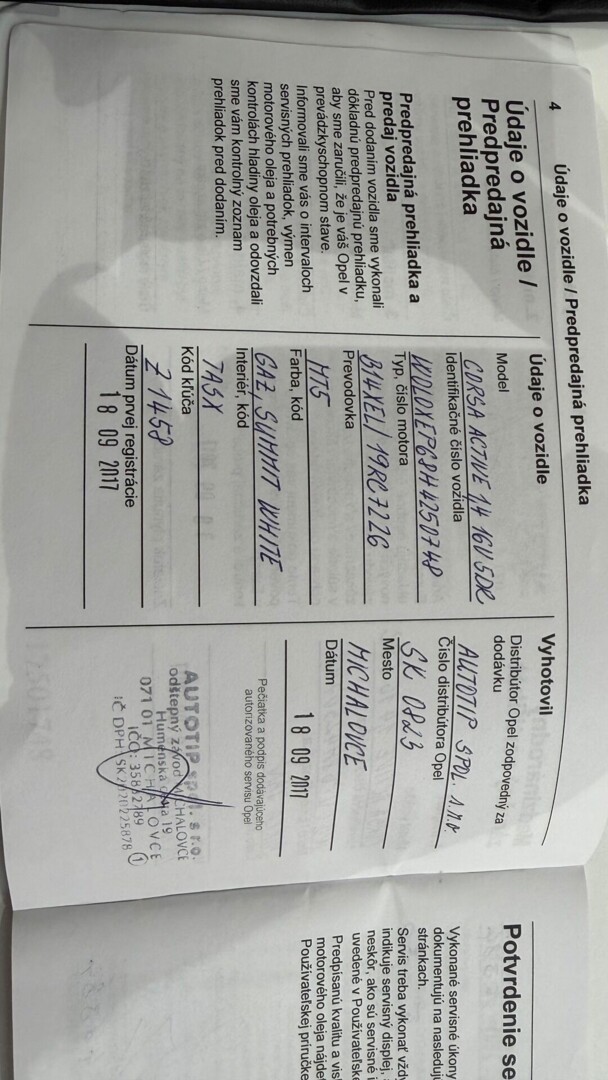 4
Údaje o vozidle / Predpredajná prehliadka
Údaje o vozidle /
Predpredajná
prehliadka
Predpredajná prehliadka a
predaj vozidla
Pred dodaním vozidla sme vykonali
dôkladnú predpredajnú prehliadku,
aby sme zaručili, že je váš Opel v
prevádzkyschopnom stave.
Informovali sme vás o intervaloch
servisných prehliadok, výmen
motorového oleja a potrebných
kontrolách hladiny oleja a odovzdali
sme vám kontrolný zoznam
prehliadok pred dodaním.
Údaje o vozidle
Model
CORSA ACTIVE 1,4 16V 5DR
Identifikačné číslo vozidla
W0L0XEP68H4250748
Typ, číslo motora
B14XEL/19RC7226
Prevodovka
MT5
Farba, kód
GAZ, SUMMIT WHITE
Interiér, kód
TASX
Kód kľúča
Z 1458
Dátum prvej registrácie
18 09 2017
Vyhotovil
Distribútor Opel zodpovedný za
dodávku
AUTOTIP SPOL. s.r.o.
Číslo distribútora Opel
SK 0823
Mesto
MICHALOVCE
Dátum
18 09 2017
Pečiatka a podpis dodávajúceho
autorizovaného servisu Opel
AUTOTIP spol. s r.o.
odštepný závod MICHALOVCE
Humenská cesta 19
071 01 MICHALOVCE
IČO:
IČ DPH
Potvrdenie se
Vykonané servisné úkony
dokumentujú na nasleduj
stránkach.
Servis treba vykonať vžd
indikuje servisný displej,
neskôr, ako sú servisné i
uvedené v Používateľsk
Predpísanú kvalitu a vis
motorového oleja nájde
Používateľskej príručke